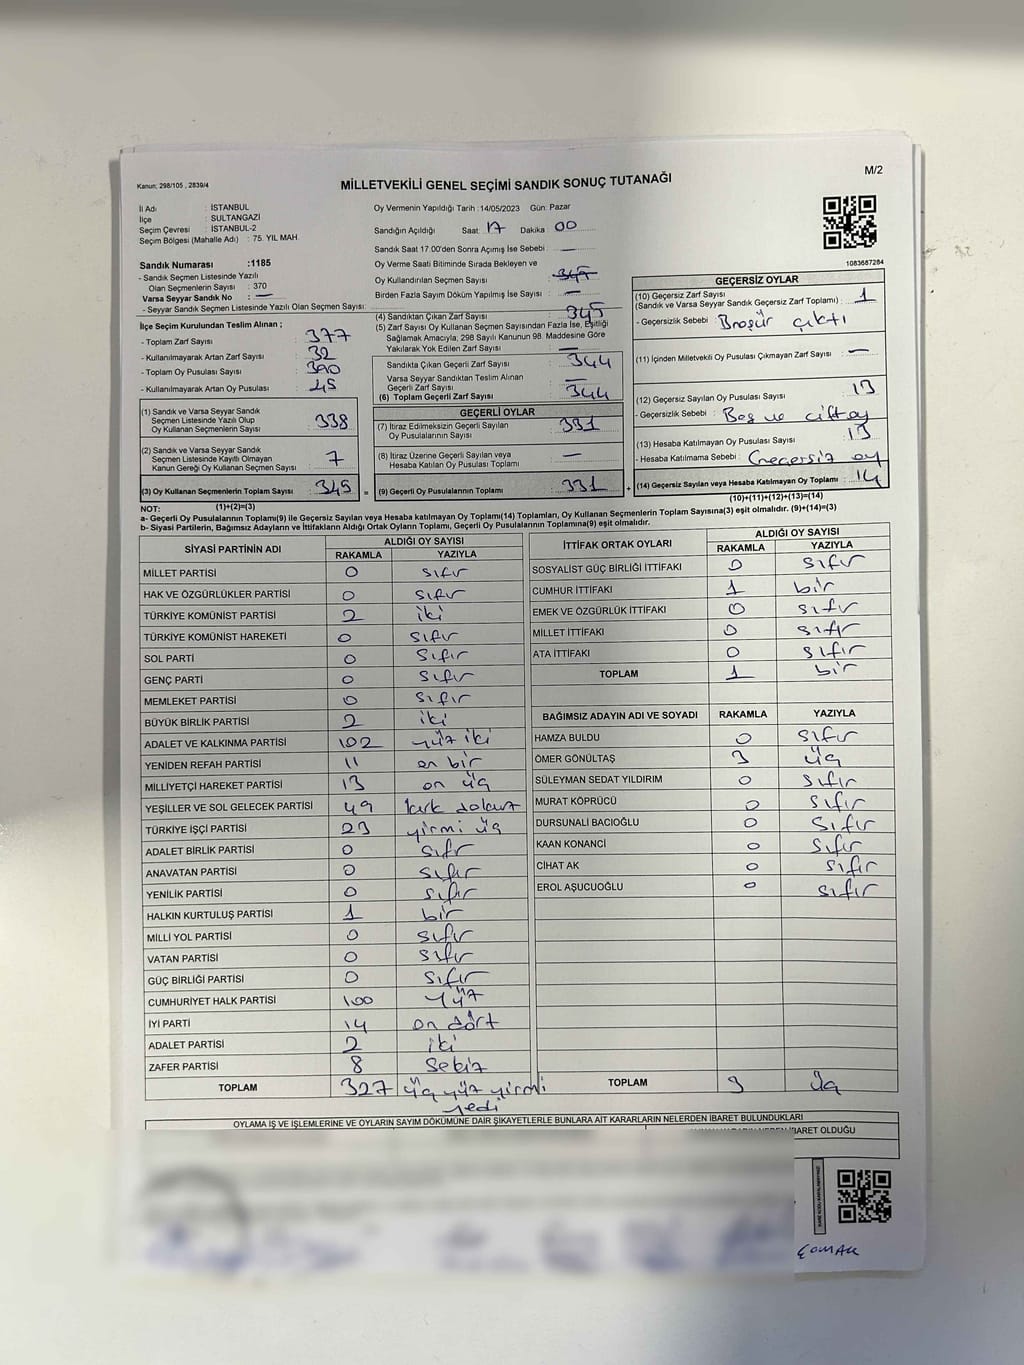 M/2
Kanun; 298/105 , 2839/4
MİLLETVEKİLİ GENEL SEÇİMİ SANDIK SONUÇ TUTANAĞI
İl Adı : İSTANBUL
İlçe : SULTANGAZİ
Seçim Çevresi : İSTANBUL-2
Seçim Bölgesi (Mahalle Adı) : 75. YIL MAH.
Sandık Numarası :1185
- Sandık Seçmen Listesinde Yazılı
Olan Seçmenlerin Sayısı : 370
Varsa Seyyar Sandık No : —
- Seyyar Sandık Seçmen Listesinde Yazılı Olan Seçmen Sayısı:
İlçe Seçim Kurulundan Teslim Alınan ;
- Toplam Zarf Sayısı : 377
- Kullanılmayarak Artan Zarf Sayısı : 32
- Toplam Oy Pusulası Sayısı : 390
- Kullanılmayarak Artan Oy Pusulası : 45
(1) Sandık ve Varsa Seyyar Sandık
Seçmen Listesinde Yazılı Olup
Oy Kullanan Seçmenlerin Sayısı : 338
(2) Sandık ve Varsa Seyyar Sandık
Seçmen Listesinde Kayıtlı Olmayan
Kanun Gereği Oy Kullanan Seçmen Sayısı : 7
(3) Oy Kullanan Seçmenlerin Toplam Sayısı : 345 =
(1)+(2)=(3)
Oy Vermenin Yapıldığı Tarih :14/05/2023 Gün: Pazar
Sandığın Açıldığı Saat: 17 Dakika 00
Sandık Saat 17.00'den Sonra Açılmış İse Sebebi : —
Oy Verme Saati Bitiminde Sırada Bekleyen ve
Oy Kullandırılan Seçmen Sayısı : 345
Birden Fazla Sayım Döküm Yapılmış İse Sayısı : —
(4) Sandıktan Çıkan Zarf Sayısı : 345
(5) Zarf Sayısı Oy Kullanan Seçmen Sayısından Fazla İse, Eşitliği
Sağlamak Amacıyla; 298 Sayılı Kanunun 98. Maddesine Göre
Yakılarak Yok Edilen Zarf Sayısı : —
Sandıkta Çıkan Geçerli Zarf Sayısı : 344
Varsa Seyyar Sandıktan Teslim Alınan
Geçerli Zarf Sayısı : —
(6) Toplam Geçerli Zarf Sayısı : 344
GEÇERLİ OYLAR
(7) İtiraz Edilmeksizin Geçerli Sayılan
Oy Pusulalarının Sayısı : 331
(8) İtiraz Üzerine Geçerli Sayılan veya
Hesaba Katılan Oy Pusulası Toplamı : —
(9) Geçerli Oy Pusulalarının Toplamı : 331 +
1083687284
GEÇERSİZ OYLAR
(10) Geçersiz Zarf Sayısı
(Sandık ve Varsa Seyyar Sandık Geçersiz Zarf Toplamı) : 1
- Geçersizlik Sebebi : Broşür çıktı
(11) İçinden Milletvekili Oy Pusulası Çıkmayan Zarf Sayısı : —
(12) Geçersiz Sayılan Oy Pusulası Sayısı : 13
- Geçersizlik Sebebi : Boş ve çift oy
(13) Hesaba Katılmayan Oy Pusulası Sayısı : 13
- Hesaba Katılmama Sebebi : Geçersiz oy
(14) Geçersiz Sayılan veya Hesaba Katılmayan Oy Toplamı : 14
(10)+(11)+(12)+(13)=(14)
NOT:
a- Geçerli Oy Pusulaları Toplamı(9) ile Geçersiz Sayılan veya Hesaba Katılmayan Oy Toplamı(14) Toplamları, Oy Kullanan Seçmenlerin Toplam Sayısına(3) eşit olmalıdır. (9)+(14)=(3)
b- Siyasi Partilerin, Bağımsız Adayların ve İttifakların Aldığı Ortak Oyların Toplamı, Geçerli Oy Pusulalarının Toplamına(9) eşit olmalıdır.
SİYASİ PARTİNİN ADI ALDIĞI OY SAYISI
RAKAMLA YAZIYLA
MİLLET PARTİSİ 0 sıfır
HAK VE ÖZGÜRLÜKLER PARTİSİ 0 sıfır
TÜRKİYE KOMÜNİST PARTİSİ 2 iki
TÜRKİYE KOMÜNİST HAREKETİ 0 sıfır
SOL PARTİ 0 sıfır
GENÇ PARTİ 0 sıfır
MEMLEKET PARTİSİ 0 sıfır
BÜYÜK BİRLİK PARTİSİ 2 iki
ADALET VE KALKINMA PARTİSİ 102 yüz iki
YENİDEN REFAH PARTİSİ 11 on bir
MİLLİYETÇİ HAREKET PARTİSİ 13 on üç
YEŞİLLER VE SOL GELECEK PARTİSİ 49 kırk dokuz
TÜRKİYE İŞÇİ PARTİSİ 23 yirmi üç
ADALET BİRLİK PARTİSİ 0 sıfır
ANAVATAN PARTİSİ 0 sıfır
YENİLİK PARTİSİ 0 sıfır
HALKIN KURTULUŞ PARTİSİ 1 bir
MİLLİ YOL PARTİSİ 0 sıfır
VATAN PARTİSİ 0 sıfır
GÜÇ BİRLİĞİ PARTİSİ 0 sıfır
CUMHURİYET HALK PARTİSİ 100 yüz
İYİ PARTİ 14 on dört
ADALET PARTİSİ 2 iki
ZAFER PARTİSİ 8 sekiz
TOPLAM 327 üç yüz yirmi
yedi
İTTİFAK ORTAK OYLARI ALDIĞI OY SAYISI
RAKAMLA YAZIYLA
SOSYALİST GÜÇ BİRLİĞİ İTTİFAKI 0 sıfır
CUMHUR İTTİFAKI 1 bir
EMEK VE ÖZGÜRLÜK İTTİFAKI 0 sıfır
MİLLET İTTİFAKI 0 sıfır
ATA İTTİFAKI 0 sıfır
TOPLAM 1 bir
BAĞIMSIZ ADAYIN ADI VE SOYADI RAKAMLA YAZIYLA
HAMZA BULDU 0 sıfır
ÖMER GÖNÜLTAŞ 3 üç
SÜLEYMAN SEDAT YILDIRIM 0 sıfır
MURAT KÖPRÜCÜ 0 sıfır
DURSUNALİ BACIOĞLU 0 sıfır
KAAN KONANCİ 0 sıfır
CİHAT AK 0 sıfır
EROL AŞUCUOĞLU 0 sıfır
TOPLAM 3 üç
OYLAMA İŞ VE İŞLEMLERİNE VE OYLARIN SAYIM DÖKÜMÜNE DAİR ŞİKAYETLERLE BUNLARA AİT KARARLARIN NELERDEN İBARET BULUNDUKLARI
İBARET OLDUĞU